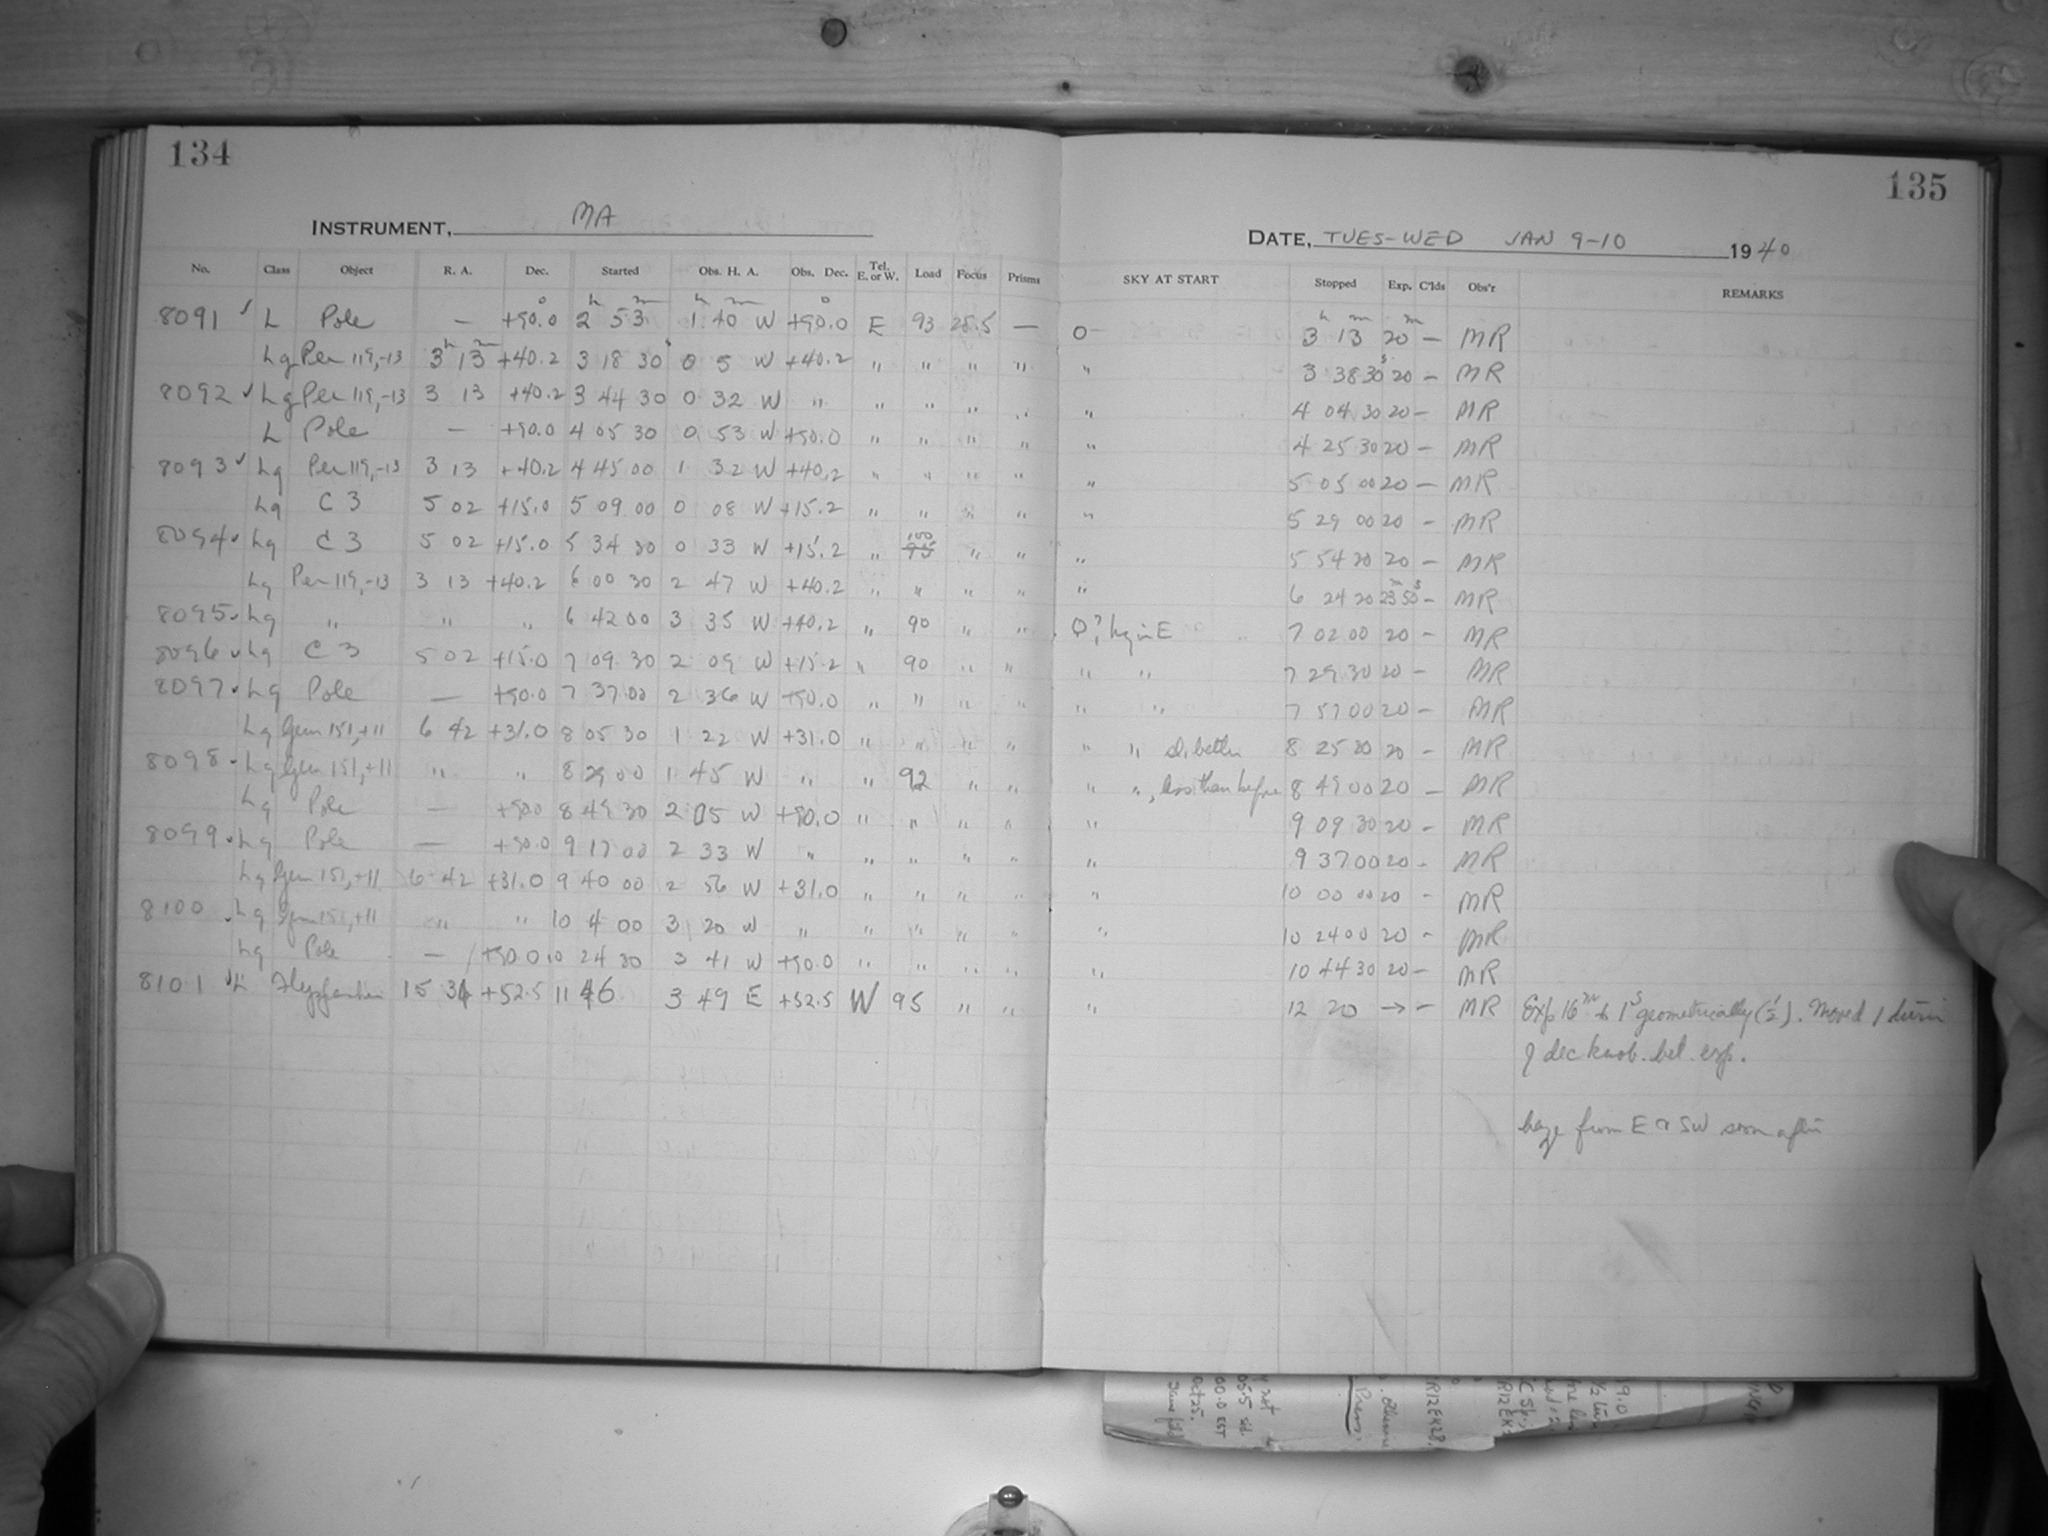 134
135
INSTRUMENT, MA
DATE, TUES-WED JAN 9-10 1940
No. Class Object R. A. Dec. Started Obs. H. A. Obs. Dec. Tel. E. or W. Load Focus Prisms SKY AT START Stopped Exp. C'lds Obs'r REMARKS
8091 ✓ L Pole — +90.0° 2h 53m 1h 40m W +90.0° E 93 28.5 — 0- 3h 13m 20m — MR
Lg Per 119,-13 3h 13m +40.2 3 18 30s 0 5 W +40.2 " " " " " 3 38 30s 20 — MR
8092 ✓ Lg Per 119,-13 3 13 +40.2 3 44 30 0 32 W " " " " " " 4 04 30 20 — MR
L Pole — +90.0 4 05 30 0 53 W +90.0 " " " " " 4 25 30 20 — MR
8093 ✓ Lg Per 119,-13 3 13 +40.2 4 45 00 1 32 W +40.2 " " " " " 5 05 00 20 — MR
Lg C 3 5 02 +15.0 5 09 00 0 08 W +15.2 " " " " " 5 29 00 20 — MR
8094 ✓ Lg C 3 5 02 +15.0 5 34 30 0 33 W +15.2 " 100 95 " " " 5 54 30 20 — MR
Lg Per 119,-13 3 13 +40.2 6 00 30 2 47 W +40.2 " " " " " 6 24 20 23m 50s — MR
8095 ✓ Lg " " " 6 42 00 3 35 W +40.2 " 90 " " 0?, hzy in E 7 02 00 20 — MR
8096 ✓ Lg C 3 5 02 +15.0 7 09 30 2 09 W +15.2 " 90 " " " " 7 29 30 20 — MR
8097 ✓ Lg Pole — +90.0 7 37 00 2 36 W +90.0 " " " " " " 7 57 00 20 — MR
Lg Gem 151,+11 6 42 +31.0 8 05 30 1 22 W +31.0 " " " " " " sl. better 8 25 30 20 — MR
8098 ✓ Lg Gem 151,+11 " " 8 29 00 1 45 W " " 92 " " " ", less than before 8 49 00 20 — MR
Lg Pole — +90.0 8 49 30 2 05 W +90.0 " " " " " 9 09 30 20 — MR
8099 ✓ Lg Pole — +90.0 9 17 00 2 33 W " " " " " " 9 37 00 20 — MR
Lg Gem 151,+11 6 42 +31.0 9 40 00 2 56 W +31.0 " " " " " 10 00 00 20 — MR
8100 ✓ Lg Gem 151,+11 " " 10 4 00 3 20 W " " " " " " 10 24 00 20 — MR
Lg Pole — +90.0 10 24 30 3 41 W +90.0 " " " " " 10 44 30 20 — MR
8101 ✓ L 15 34 +52.5 11 46 3 49 E +52.5 W 95 " " " 12 20 → — MR Exp 16m to 1s geometrically (1/2). Moved 1 turn
of dec knob. bet. exp.
haze from E & SW soon after